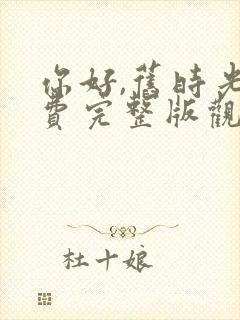 你好,舊時光
費完整版觀
杜十娘